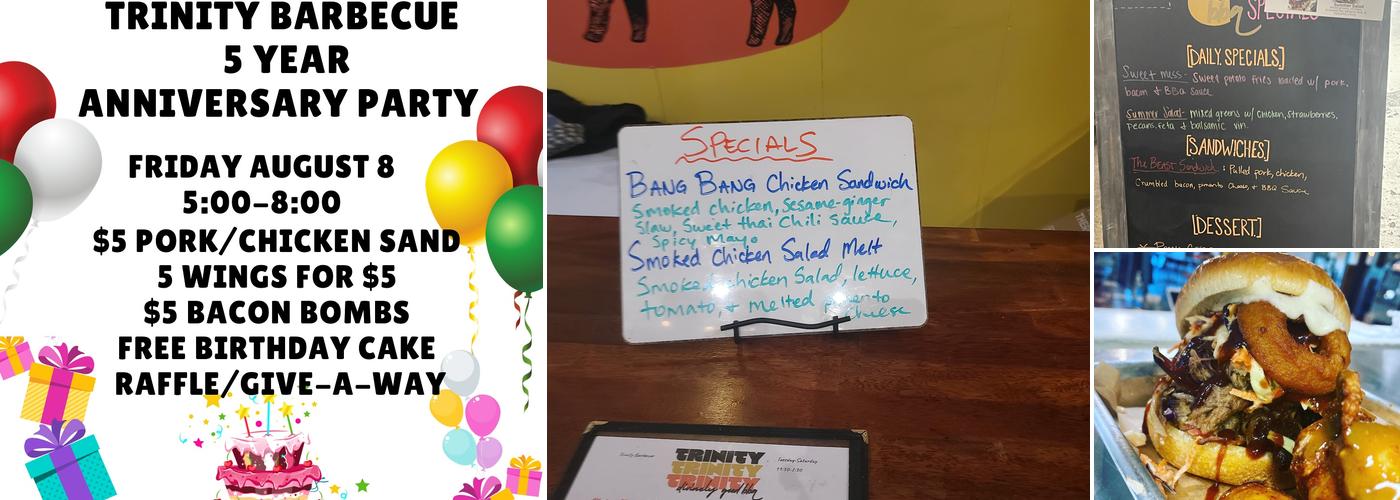 TRINITY BARBECUE
5 YEAR
ANNIVERSARY PARTY
FRIDAY AUGUST 8
5:00-8:00
$5 PORK/CHICKEN SAND
5 WINGS FOR $5
$5 BACON BOMBS
FREE BIRTHDAY CAKE
RAFFLE/GIVE-A-WAY
SPECIALS
BANG BANG Chicken Sandwich
Smoked chicken, sesame-ginger
Slaw, Sweet thai Chili sauce,
& Spicy Mayo
Smoked Chicken Salad Melt
Smoked chicken Salad, lettuce,
tomato, & melted pimento
cheese
Trinity Barbecue
TRINITY
TRINITY
TRINITY
divinely good bbq
Tuesday-Saturday
11:30-2:30
SPECIALS
[DAILY SPECIALS]
Sweet mess- Sweet potato fries loaded w/ pork,
bacon & BBQ sauce
Summer Salad- mixed greens w/ chicken, strawberries,
pecans, feta & balsamic vin.
[SANDWICHES]
The BEAST Sandwich: Pulled pork, chicken,
Crumbled bacon, pimento cheese, & BBQ Sauce
[DESSERT]
Summer Salad